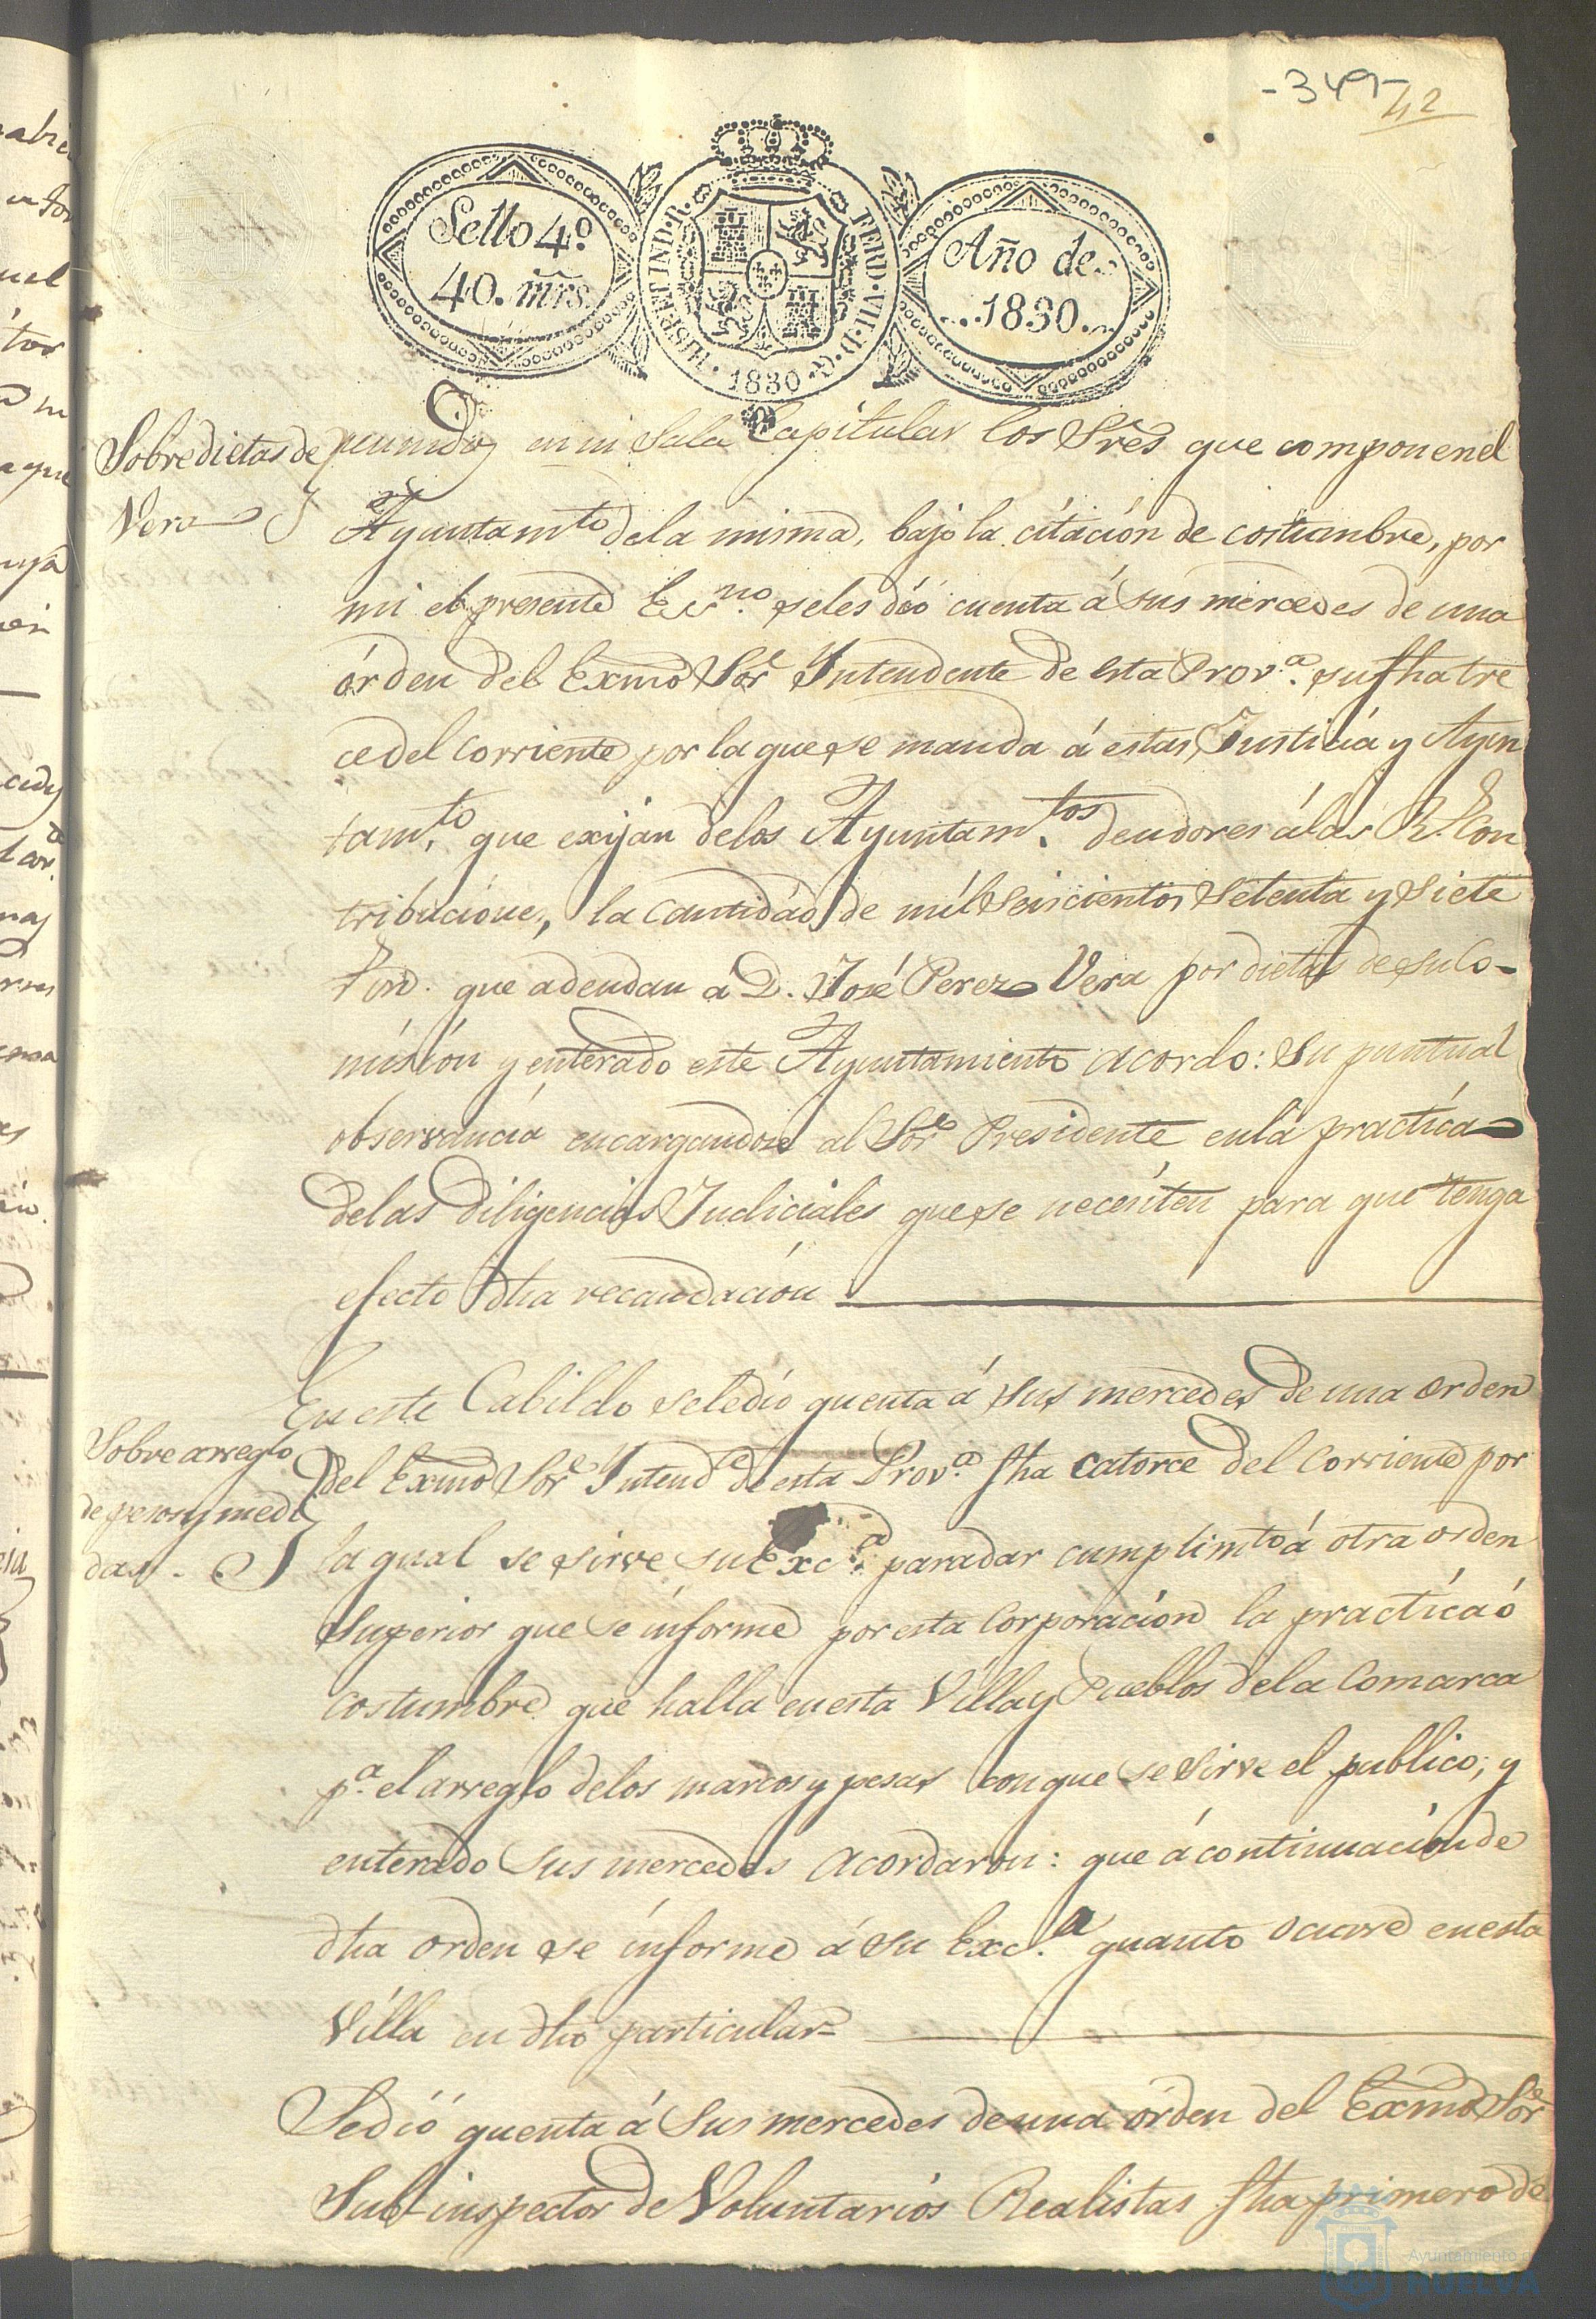 -349-
42
Sello 4º.
40. mrs.
HISP. ET IND. R. FERD. VII. D. G.
1830
Año de
1830.
Sobre dietas de
Vera
reunidos en su Sala Capitular los Sres que componen el
Ayuntamto dela misma, bajo la citación de costumbre, por
mi el presente Escno. seles dió cuenta á sus mercedes de una
órden del Exmo Sor Yntendente de esta Prova. su fha tre
ce del corriente por la que se manda á estas Justicia y Ayun
tamto. que exijan delos Ayuntamtos. deudores álas Rs. Con
tribuciones, la cantidad de míl Seiscientos Setenta y Siete
que adeudan a D. José Perez Vera por dietas de su Co-
misión y enterado este Ayuntamiento acordo: Su puntual
observancia encargandose al Sor Presidente enla practica
delas diligencias Judiciales que se necesiten para que tenga
efecto dha recaudación
En este Cabildo seledió quenta á sus mercedes de una orden
Sobre arreglo
de pesos y medi
das.
del Exmo Sor Yntende de esta Prova. fha catorce del corriente por
la qual se sirve su Exca. para dar cumplimto á otra orden
Superior que se informe por esta Corporación la practica ó
costumbre que halla en esta Villa y Pueblos dela Comarca
pa. el arreglo delos marcos y pesas conque se sirve el publico; y
enterado Sus mercedes acordaron: que á continuación de
dha orden se informe á su Exca. quanto ocurre en esta
Villa en dho particular=
Sedió quenta á Sus mercedes de una órden del Exmo Sor
Sub-inspector de Voluntarios Realistas fha primero de
Ayuntamiento
HUELVA